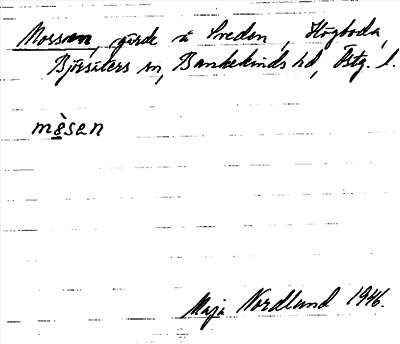 Mossen, gärde å Sveden, Högboda,
Björsäters sn, Bankekinds hd, Östg. l.
mò̠̠sen
Maja Nordlund 1946.